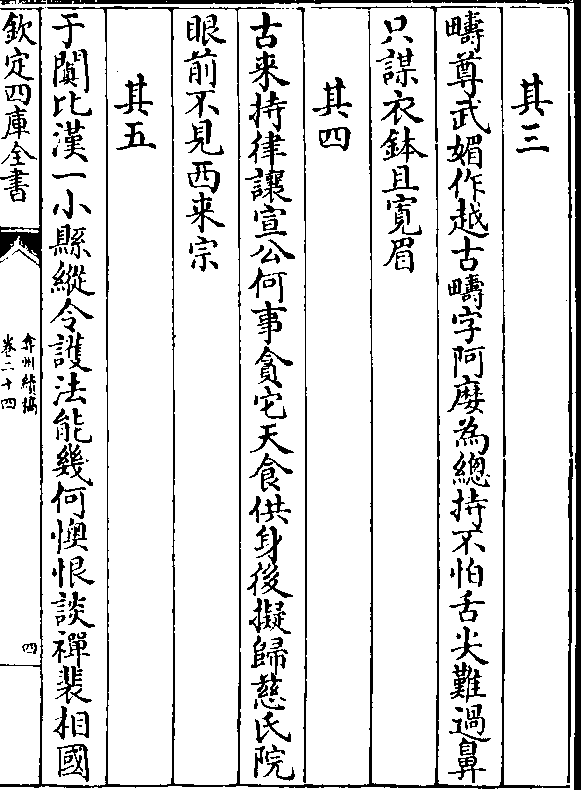 其三
疇尊武媚作越古疇字阿䃺為總持不怕舌尖難過鼻
只謀衣鉢且寛眉
其四
古来持律讓宣公何事貪它天食供身後擬歸慈氏院
眼前不見西来宗
其五
于闐比漢一小縣縱令護法能幾何懊恨談禪裴相國
欽定四庫全書
弇州續稿
卷二十四
四